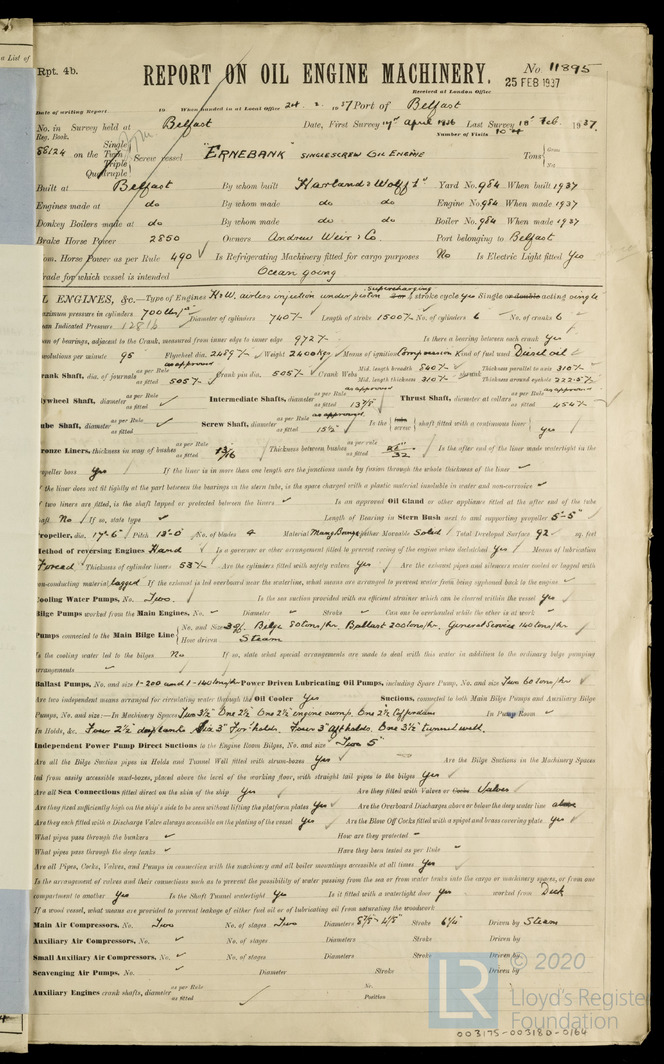 a List of
Rpt. 4b.
REPORT ON OIL ENGINE MACHINERY.
No. 11895
Received at London Office
25 FEB 1937
Date of writing Report 19 When handed in at Local Office 24. 2. 1937 Port of Belfast
No. in Survey held at Belfast Date, First Survey 17th April 1936 Last Survey 18th Feb. 1937.
Reg. Book. Number of Visits 104
88124 on the Single Twin Triple Quadruple Screw vessel "ERNEBANK" SINGLE SCREW OIL ENGINE Tons Gross Net
Built at Belfast By whom built Harland & Wolff Ld Yard No. 984 When built 1937
Engines made at do By whom made do do Engine No. 984 When made 1937
Donkey Boilers made at do By whom made do do Boiler No. 984 When made 1937
Brake Horse Power 2850 Owners Andrew Weir & Co. Port belonging to Belfast
Nom. Horse Power as per Rule 490 Is Refrigerating Machinery fitted for cargo purposes No Is Electric Light fitted Yes
Trade for which vessel is intended Ocean going
OIL ENGINES, &c.—Type of Engines H & W. airless injection underpiston supercharging 2 or 4 stroke cycle Yes Single or double acting single
Maximum pressure in cylinders 700 lbs Diameter of cylinders 740 Length of stroke 1500 No. of cylinders 6 No. of cranks 6
Mean Indicated Pressure 128 lb
Span of bearings, adjacent to the Crank, measured from inner edge to inner edge 972 Is there a bearing between each crank Yes
Revolutions per minute 95 Flywheel dia. 2489 Weight 2400 kgs Means of ignition Compression Kind of fuel used Diesel oil
Crank Shaft, dia. of journals as per Rule as approved as fitted 505 Crank pin dia. 505 Crank Webs Mid. length breadth 840 Mid. length thickness 310 Thickness parallel to axis 310 Thickness around eyehole 222.5
Flywheel Shaft, diameter as per Rule as fitted Intermediate Shafts, diameter as per Rule as approved as fitted Thrust Shaft, diameter at collars as per Rule as approved as fitted 454
Tube Shaft, diameter as per Rule as fitted Screw Shaft, diameter as per Rule as approved as fitted 15½ Is the tube screw shaft fitted with a continuous liner Yes
Bronze Liners, thickness in way of bushes as per Rule as fitted 13/16 Thickness between bushes as per rule as fitted Is the after end of the liner made watertight in the
propeller boss Yes If the liner is in more than one length are the junctions made by fusion through the whole thickness of the liner
If the liner does not fit tightly at the part between the bearings in the stern tube, is the space charged with a plastic material insoluble in water and non-corrosive
If two liners are fitted, is the shaft lapped or protected between the liners Is an approved Oil Gland or other appliance fitted at the after end of the tube
shaft No If so, state type Length of Bearing in Stern Bush next to and supporting propeller 5'-5"
Propeller, dia. 17'-6" Pitch 13'-0" No. of blades 4 Material Mang Bronze whether Moveable Solid Total Developed Surface 92 sq. feet
Method of reversing Engines Hand Is a governor or other arrangement fitted to prevent racing of the engine when declutched Yes Means of lubrication
Forced Thickness of cylinder liners 53 Are the cylinders fitted with safety valves Yes Are the exhaust pipes and silencers water cooled or lagged with
non-conducting material lagged If the exhaust is led overboard near the waterline, what means are arranged to prevent water from being syphoned back to the engine
Cooling Water Pumps, No. Two. Is the sea suction provided with an efficient strainer which can be cleared within the vessel Yes
Bilge Pumps worked from the Main Engines, No. Diameter Stroke Can one be overhauled while the other is at work
Pumps connected to the Main Bilge Line No. and Size 3 off. Bilge 80 tons/hr. Ballast 200 tons/hr. General Service 140 tons/hr
How driven Steam
Is the cooling water led to the bilges No If so, state what special arrangements are made to deal with this water in addition to the ordinary bilge pumping
arrangements
Ballast Pumps, No. and size 1-200 and 1-140 tons/hr Power Driven Lubricating Oil Pumps, including Spare Pump, No. and size Two 60 tons/hr
Are two independent means arranged for circulating water through the Oil Cooler Yes Suctions, connected to both Main Bilge Pumps and Auxiliary Bilge
Pumps, No. and size:—In Machinery Spaces Two 3½" One 2½" One 2½" engine sump. One 2½" Cofferdam In Pump Room
In Holds, &c. Four 2½" deep tanks. Six 3" For'd holds. Four 3" Aft holds. One 3½" tunnel well.
Independent Power Pump Direct Suctions to the Engine Room Bilges, No. and size Two 5"
Are all the Bilge Suction pipes in Holds and Tunnel Well fitted with strum-boxes Yes Are the Bilge Suctions in the Machinery Spaces
led from easily accessible mud-boxes, placed above the level of the working floor, with straight tail pipes to the bilges Yes
Are all Sea Connections fitted direct on the skin of the ship Yes Are they fitted with Valves or Cocks Valves
Are they fixed sufficiently high on the ship's side to be seen without lifting the platform plates Yes Are the Overboard Discharges above or below the deep water line above
Are they each fitted with a Discharge Valve always accessible on the plating of the vessel Yes Are the Blow Off Cocks fitted with a spigot and brass covering plate Yes
What pipes pass through the bunkers How are they protected
What pipes pass through the deep tanks Have they been tested as per Rule
Are all Pipes, Cocks, Valves, and Pumps in connection with the machinery and all boiler mountings accessible at all times Yes
Is the arrangement of valves and their connections such as to prevent the possibility of water passing from the sea or from water tanks into the cargo or machinery spaces, or from one
compartment to another Yes Is the Shaft Tunnel watertight Yes Is it fitted with a watertight door Yes worked from Deck
If a wood vessel, what means are provided to prevent leakage of either fuel oil or of lubricating oil from saturating the woodwork
Main Air Compressors, No. Two No. of stages Two Diameters Stroke 6¼" Driven by Steam
Auxiliary Air Compressors, No. No. of stages Diameters Stroke Driven by
Small Auxiliary Air Compressors, No. No. of stages Diameters Stroke Driven by
Scavenging Air Pumps, No. Diameter Stroke Driven by
Auxiliary Engines crank shafts, diameter as per Rule as fitted No. Position
© 2020
LR
Lloyd's Register
Foundation
003175-003180-0164